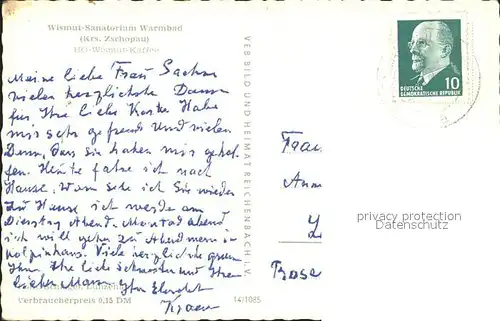 Wismut-Sanatorium Warmbad
(Krs. Zschopau)
HO-Wismut-Karte
Meine liebe Frau Sachse
vielen herzlichste Dank
für Ihre liebe Karte Habe
mir sehr gefreut Und vielen
Dank, Das Sie haben mir gehol-
fen. Heute fahre ich nach
Hause, Wan sehe ich Sie wieder
zu Hause ich werde am
Dienstag Abend. Montad abend
ich will gehen zu Abend
Viele herzliche
Ihre liebe Schwester und Ihren
lieben Mann
Verbraucherpreis 0,15 DM
14/1085
VEB BILD UND HEIMAT REICHENBACH I. V.
DEUTSCHE
DEMOKRATISCHE REPUBLIK
10
Frau
privacy protection
Datenschutz